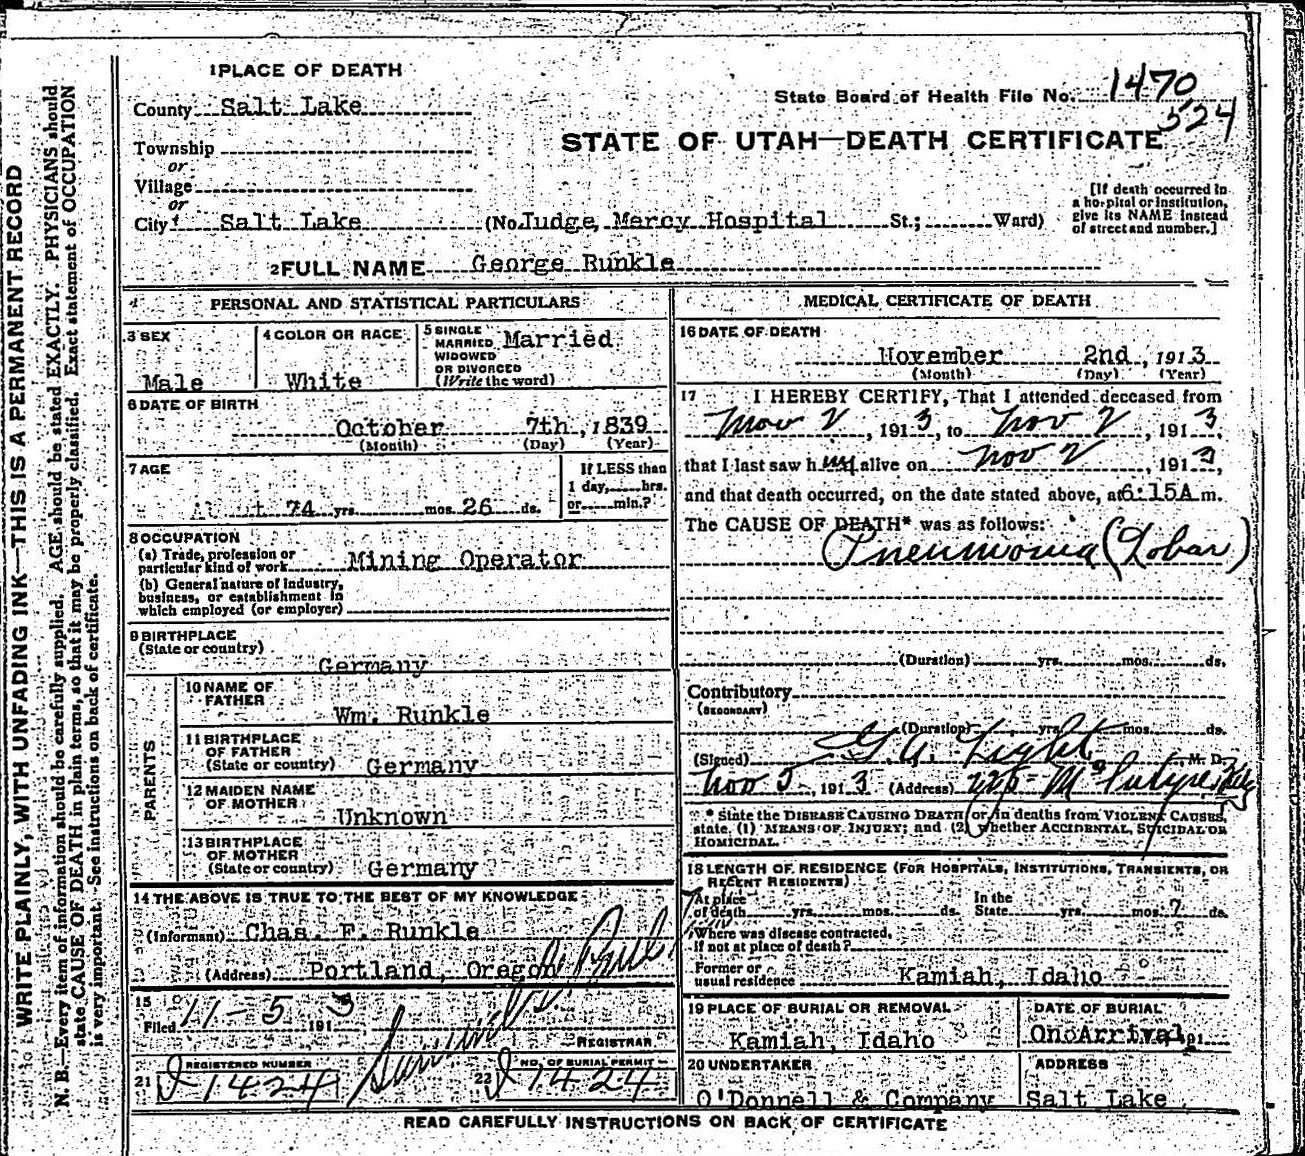 1 PLACE OF DEATH
County Salt Lake
Township
or
Village
or
City Salt Lake (No. Judge, Mercy Hospital St.; Ward)
State Board of Health File No. 1470
524
STATE OF UTAH—DEATH CERTIFICATE
[If death occurred in
a hospital or institution,
give its NAME instead
of street and number.]
2 FULL NAME George Runkle
PERSONAL AND STATISTICAL PARTICULARS
3 SEX
Male
4 COLOR OR RACE
White
5 SINGLE
MARRIED
WIDOWED
OR DIVORCED
(Write the word)
Married
6 DATE OF BIRTH
October 7th, 1839
(Month) (Day) (Year)
7 AGE
74 yrs. mos. 26 ds.
If LESS than
1 day, hrs.
or min.?
8 OCCUPATION
(a) Trade, profession or
particular kind of work Mining Operator
(b) General nature of industry,
business, or establishment in
which employed (or employer)
9 BIRTHPLACE
(State or country)
Germany
PARENTS
10 NAME OF
FATHER
Wm. Runkle
11 BIRTHPLACE
OF FATHER
(State or country) Germany
12 MAIDEN NAME
OF MOTHER
Unknown
13 BIRTHPLACE
OF MOTHER
(State or country) Germany
14 THE ABOVE IS TRUE TO THE BEST OF MY KNOWLEDGE
(Informant) Chas. F. Runkle
(Address) Portland, Oregon
15
Filed 11-5 1913
REGISTRAR
REGISTERED NUMBER
21 1424
NO. OF BURIAL PERMIT
22 1424
MEDICAL CERTIFICATE OF DEATH
16 DATE OF DEATH
November 2nd, 1913
(Month) (Day) (Year)
17 I HEREBY CERTIFY, That I attended deceased from
Nov 2, 1913, to Nov 2, 1913,
that I last saw him alive on Nov 2, 1913,
and that death occurred, on the date stated above, at 6:15A m.
The CAUSE OF DEATH* was as follows:
Pneumonia (Lobar)
(Duration) yrs. mos. ds.
Contributory
(SECONDARY)
(Duration) yrs. mos. ds.
(Signed) M. D.
Nov 5, 1913 (Address)
* State the DISEASE CAUSING DEATH, or, in deaths from VIOLENT CAUSES,
state (1) MEANS OF INJURY; and (2) whether ACCIDENTAL, SUICIDAL OR
HOMICIDAL.
18 LENGTH OF RESIDENCE (FOR HOSPITALS, INSTITUTIONS, TRANSIENTS, OR
RECENT RESIDENTS)
At place
of death yrs. mos. ds.
In the
State yrs. mos. 7 ds.
Where was disease contracted,
If not at place of death?
Former or
usual residence Kamiah, Idaho
19 PLACE OF BURIAL OR REMOVAL
Kamiah, Idaho
DATE OF BURIAL
On Arrival, 191
20 UNDERTAKER
O'Donnell & Company
ADDRESS
Salt Lake
READ CAREFULLY INSTRUCTIONS ON BACK OF CERTIFICATE
WRITE PLAINLY, WITH UNFADING INK—THIS IS A PERMANENT RECORD
N. B.—Every item of information should be carefully supplied. AGE should be stated EXACTLY. PHYSICIANS should
state CAUSE OF DEATH in plain terms, so that it may be properly classified. Exact statement of OCCUPATION
is very important. See instructions on back of certificate.